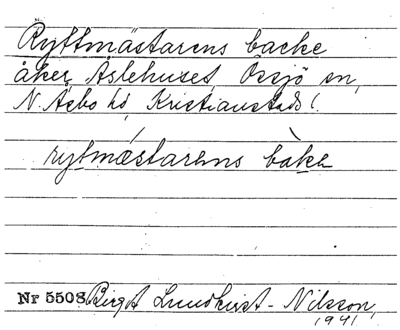 Ryttmästarens backe
åker, Åslehuset, Össjö sn,
N. Åsbo hd, Kristianstads l.
rytmæstarens bakə
Nr 5508 Birgit Lundkvist-Nilsson,
1941